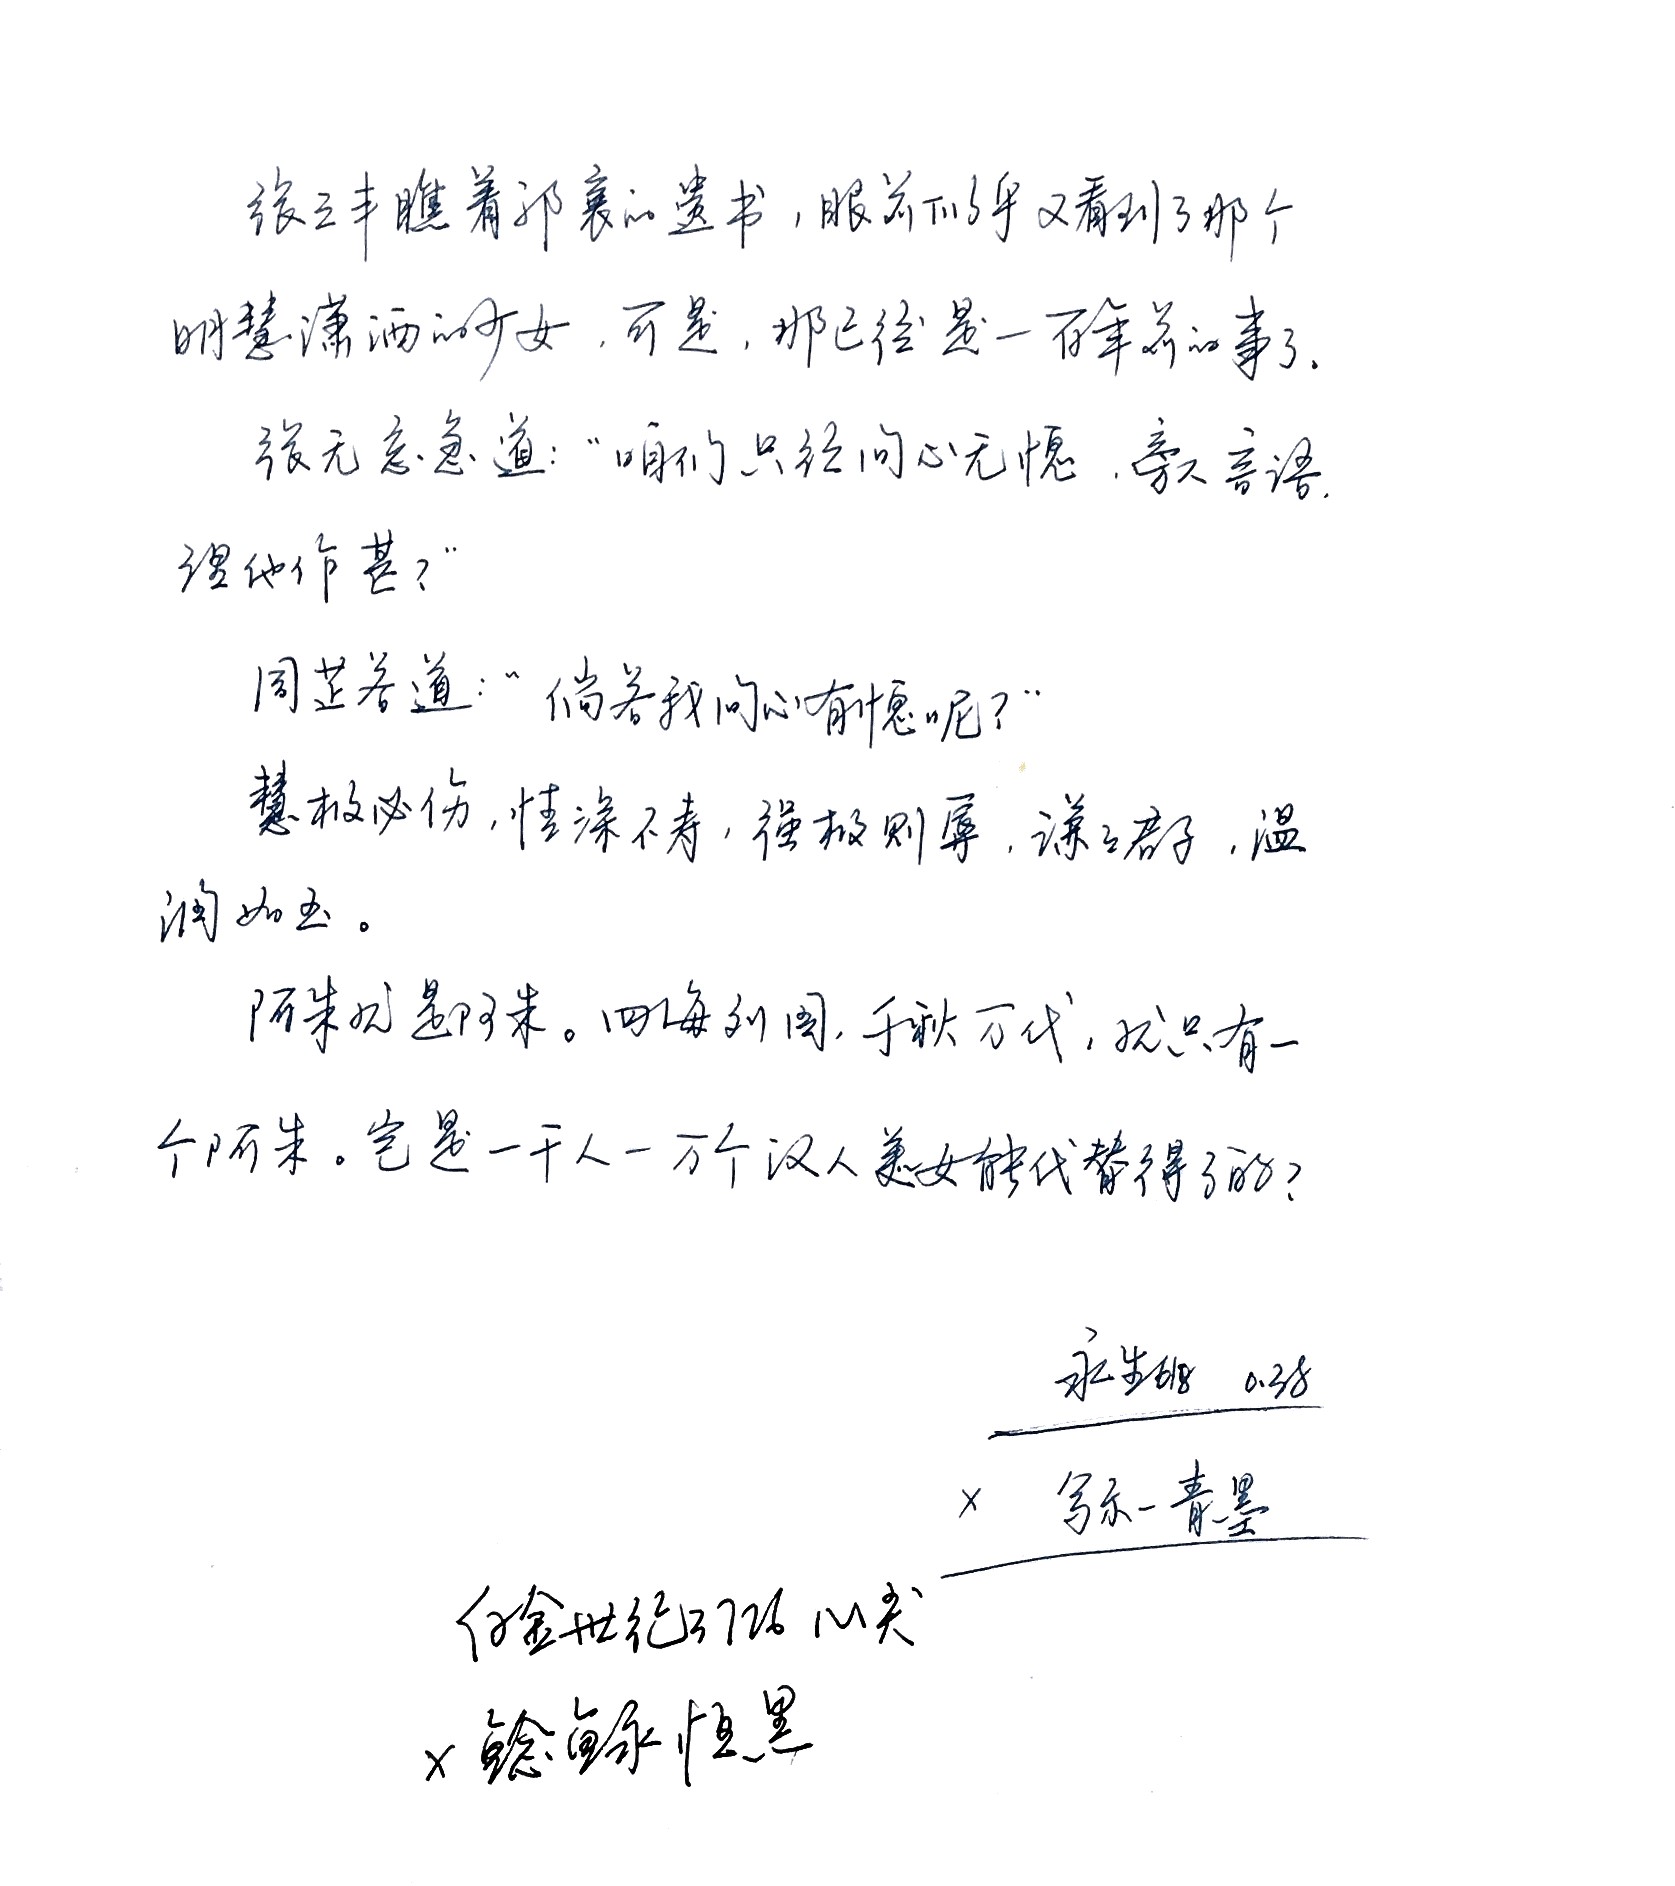 张三丰瞧着郭襄的遗书，眼前似乎又看到了那个
明慧潇洒的少女，可是，那已经是一百年前的事了。
张无忌急道："咱们只经问心无愧，旁人言语，
理他作甚？"
周芷若道："倘若我问心有愧呢？"
慧极必伤，情深不寿，强极则辱，谦谦君子，温
润如玉。
阿朱就是阿朱。四海列国，千秋万代，就只有一
个阿朱。岂是一千人一万个汉人美女能代替得了的？
永生618 0.38
× 写乐一青墨
百金世纪3726 M尖
× 鲶鱼永恒黑